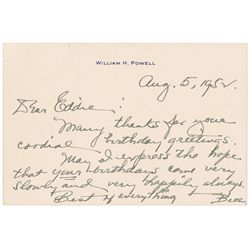 WILLIAM H. POWELL
Aug. 5, 1952.
Dear Eddie:
Many thanks for your
cordial birthday greetings.
May I express the hope
that your birthdays come very
slowly and very happily always.
Best of everything
Bill